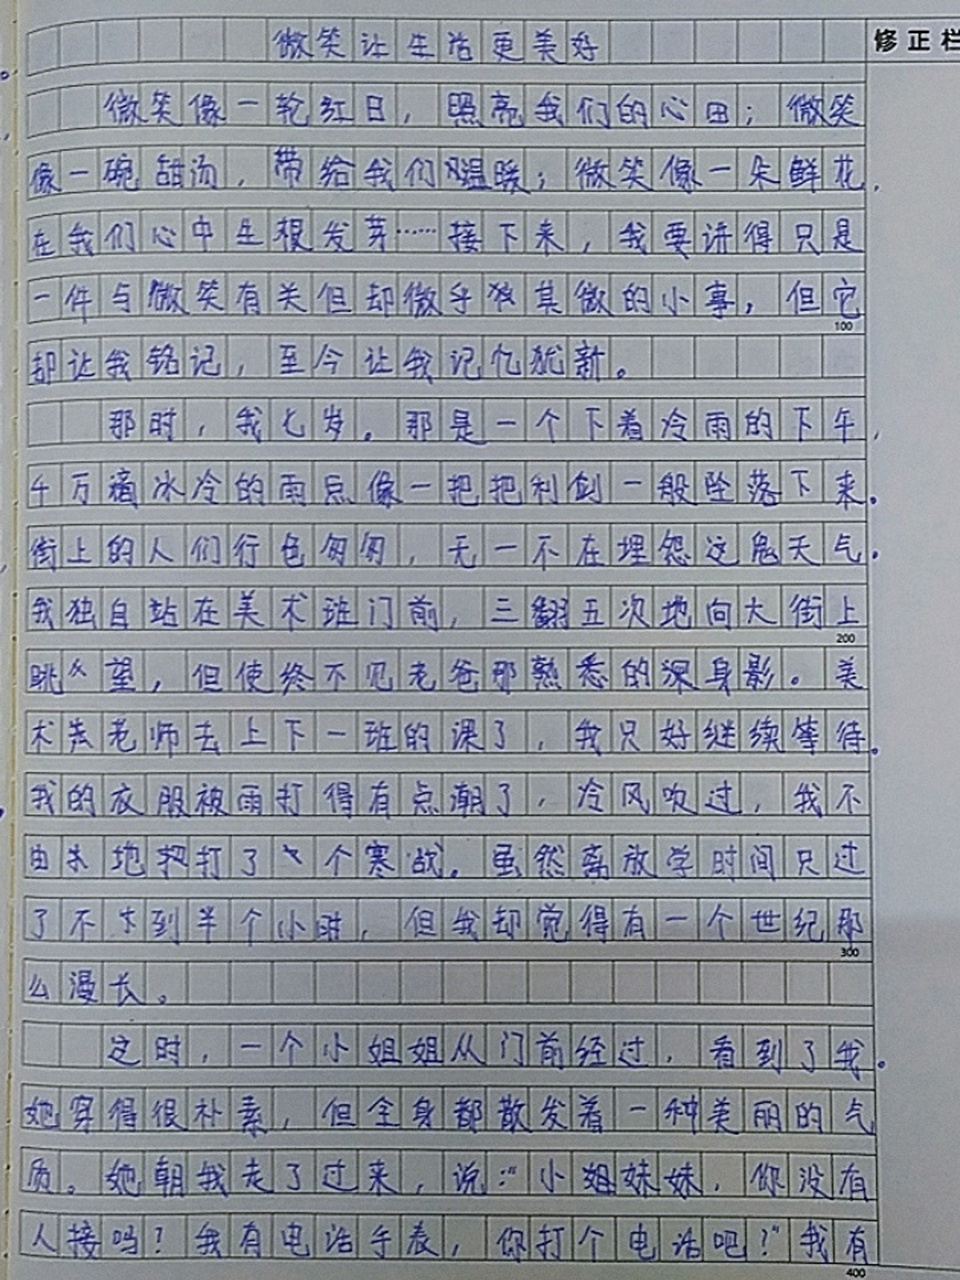 微笑让生活更美好
修正栏
微笑像一轮红日，照亮我们的心田；微笑
像一碗甜汤，带给我们温暖；微笑像一朵鲜花，
在我们心中生根发芽……接下来，我要讲得只是
一件与微笑有关但却微乎极其微的小事，但它
100
却让我铭记，至今让我记忆犹新。
那时，我七岁。那是一个下着冷雨的下午，
千万滴冰冷的雨点像一把把利剑一般坠落下来。
街上的人们行色匆匆，无一不在埋怨这鬼天气。
我独自站在美术班门前，三翻五次地向大街上
200
眺望，但使终不见老爸那熟悉的深身影。美
术老师去上下一班的课了，我只好继续等待。
我的衣服被雨打得有点潮了，冷风吹过，我不
由地打了个寒战。虽然离放学时间只过
了不到半个小时，但我却觉得有一个世纪那
300
么漫长。
这时，一个小姐姐从门前经过，看到了我。
她穿得很朴素，但全身都散发着一种美丽的气
质。她朝我走了过来，说：“小妹妹，你没有
人接吗？我有电话手表，你打个电话吧？”我有
400